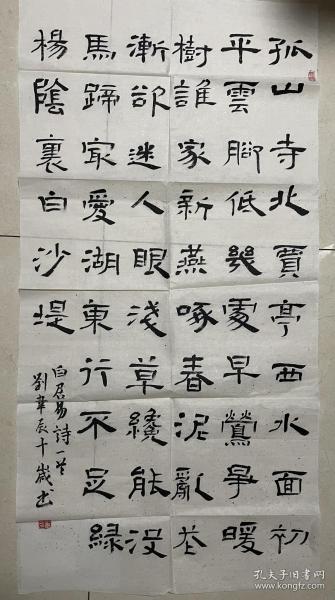 孤山寺北賈亭西水面初
平雲腳低幾處早鶯爭暖
樹誰家新燕啄春泥亂花
漸欲迷人眼淺草纔能没
馬蹄冣愛湖東行不足緑
楊陰裏白沙堤
白居易詩一首
劉華辰十歲书
孔夫子旧书网